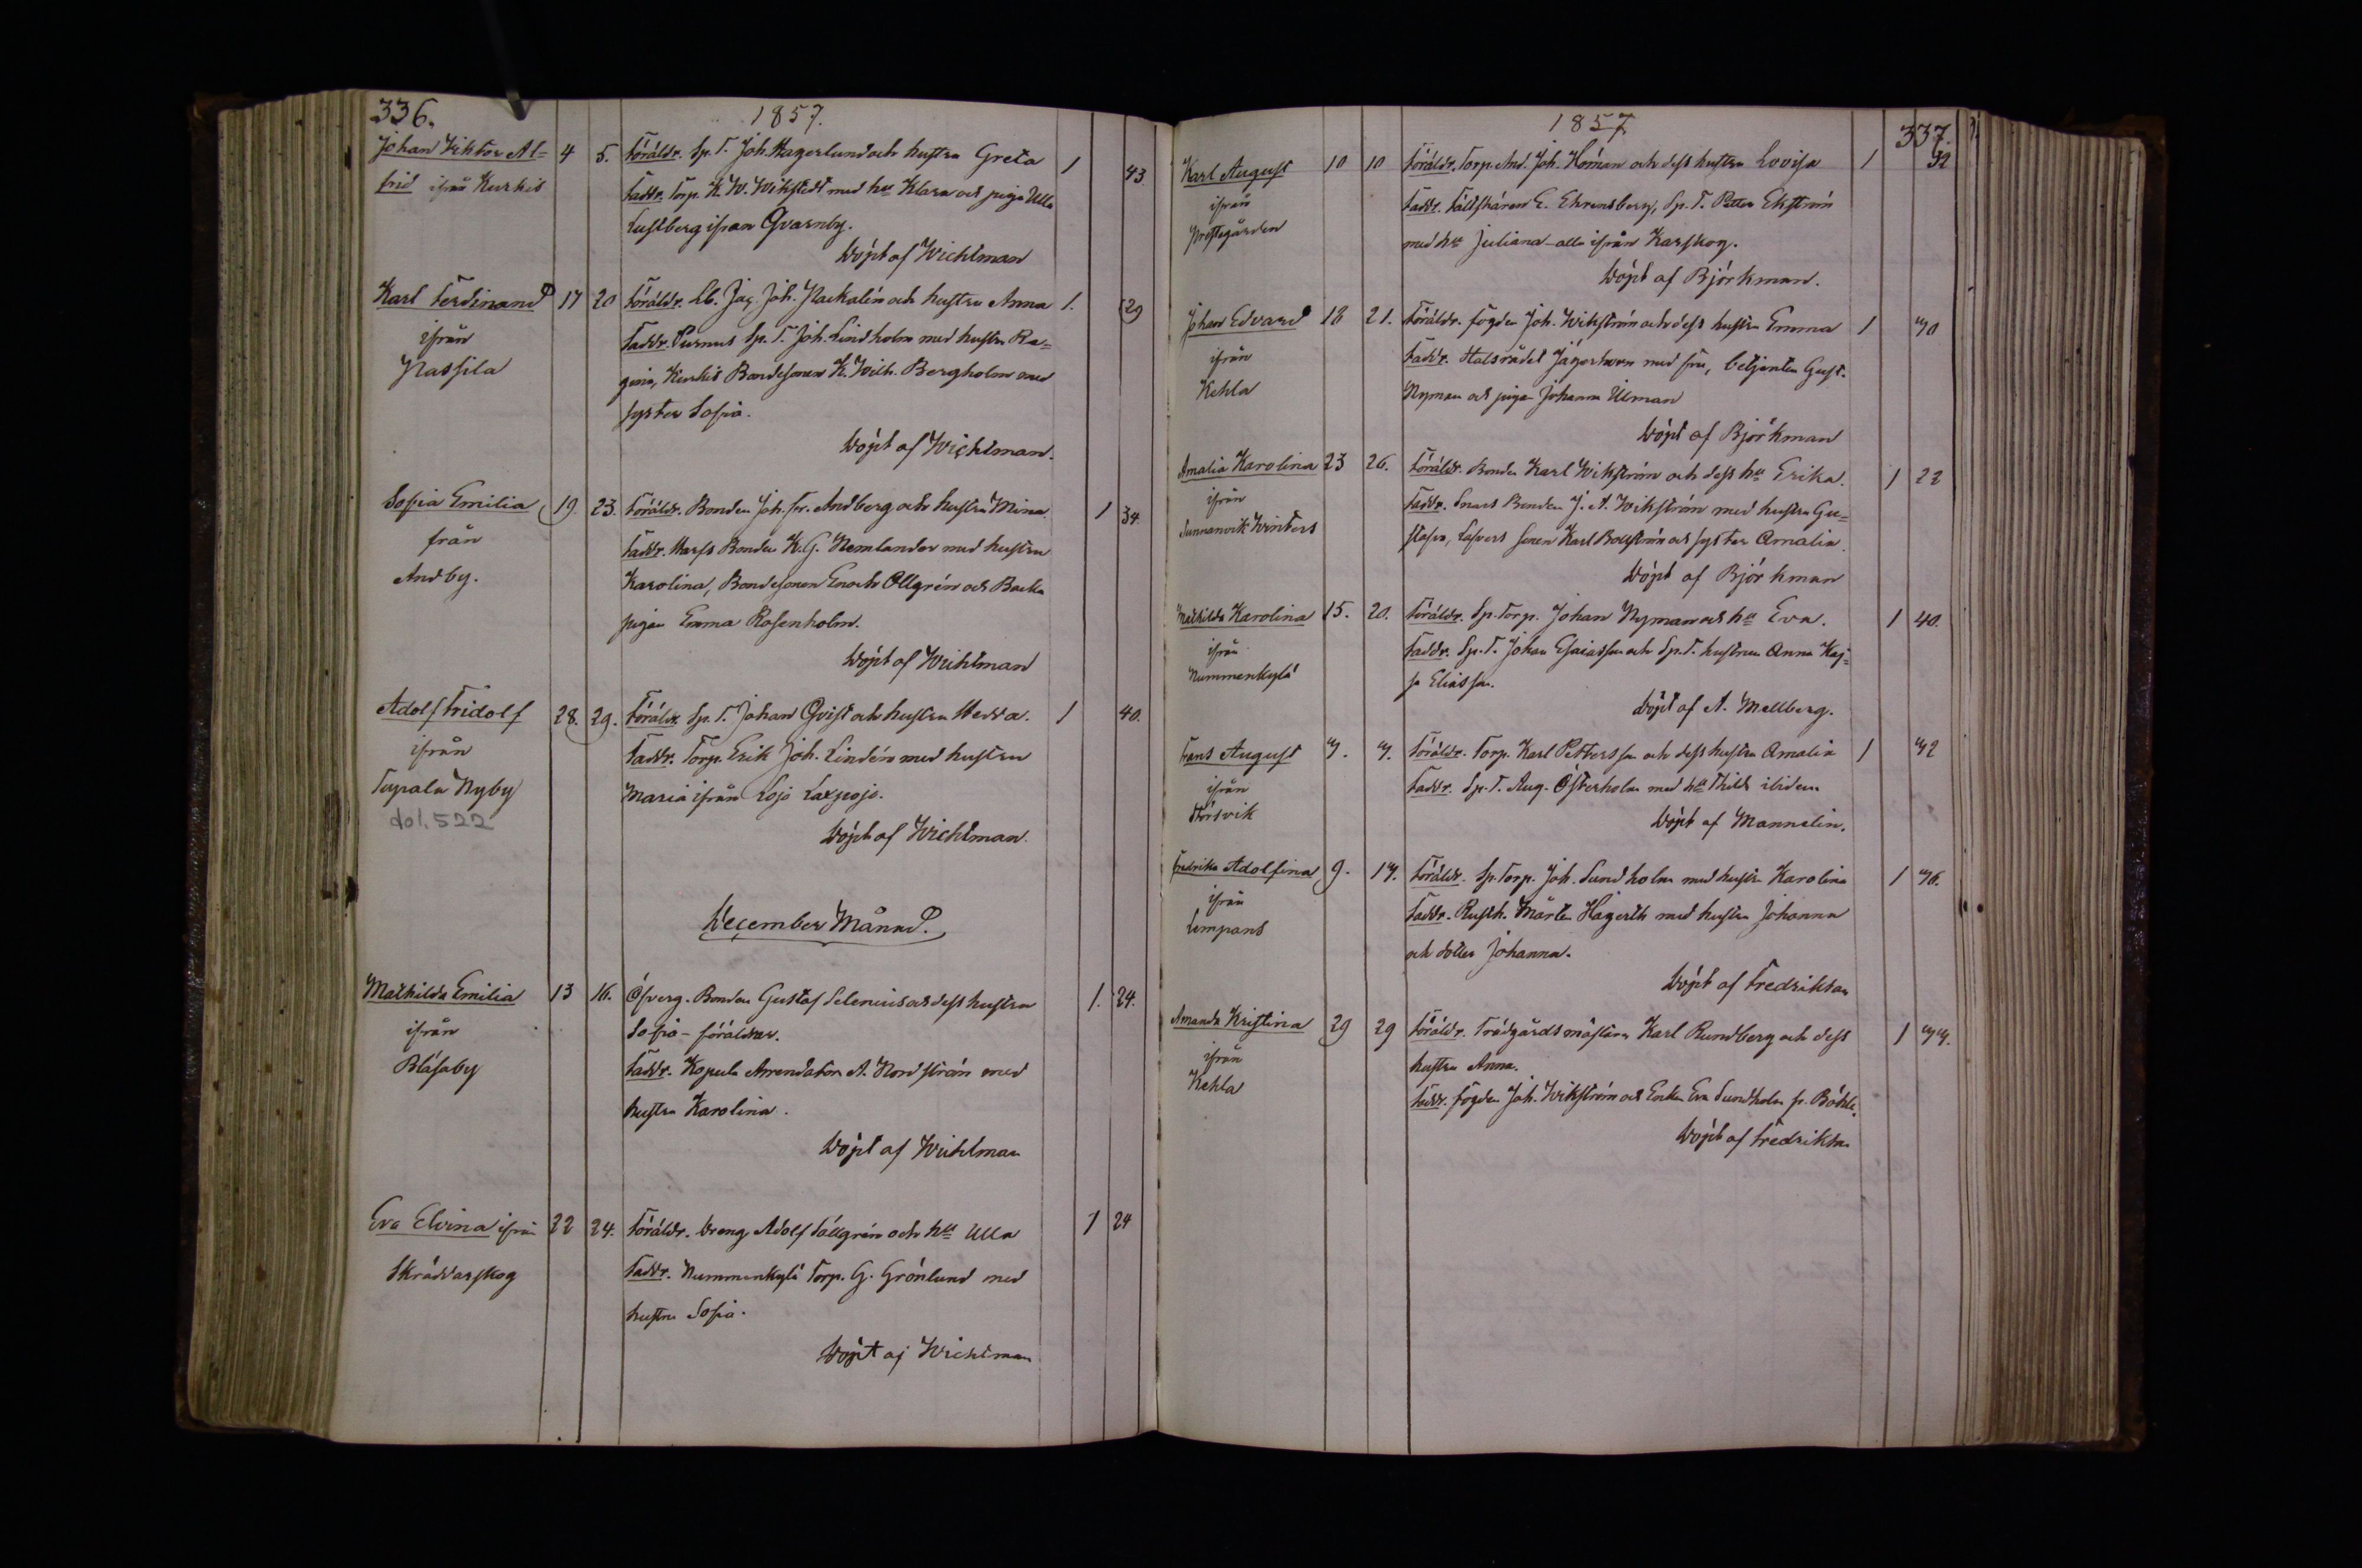 336.
1857.
Johan Viktor Al= 4 5. Föräldr. Sp. T. Joh. Hagerlund och hustru Greta 1 43
frid ifrån Kurkis Faddr. Torp. K. W. Wikstedt med hu Klara och piga Ulla
Lustberg ifrån Qvarnby.
Döpt af Wichtman
Karl Ferdinand 17 20 Föräldr. Lb. Jäg. Joh. Nackalin och hustru Anna 1. 29
ifrån Faddr. Purnus Sp. T. Joh. Lindholm med hustru Re=
Nassila gina, Kurkis Bondesonen K. Wilh. Bergholm med
syster Sofia.
Döpt af Wichtman.
Sofia Emilia 19. 23. Föräldr. Bonden Joh. Fr. Andberg och hustru Mina 1 34.
från Faddr. Marss Bonden K. G. Nemlander med hustru
Andby. Karolina, Bondesonen Enoch Ollgrén och Backa
pigan Emma Rosenholm.
Döpt af Wichtman
Adolf Fridolf 28. 29. Föräldr. Sp. T. Johan Qvist och hustru Hedda. 1 40.
ifrån Faddr. Torp. Erik Joh. Lindén med hustru
Typala Nyby Maria ifrån Lojo Laxpojo.
dol. 522
Döpt af Wichtman.
December Månad.
Mathilda Emilia 13 16. Öfverg. Bonden Gustaf Selenius och dess hustru 1. 24.
ifrån Sofia - föräldrar.
Blåsaby Faddr. Kopula Arrendator A. Nordström med
hustru Karolina.
Döpt af Wichtman
Eva Elvina ifrån 22 24. Föräldr. Dreng Adolf Sällgrén och hu Ulla 1 24
Skräddarskog Faddr. Nummenkylä Torp. G. Grönlund med
hustru Sofia.
Döpt af Wichtman
1857
337.
Karl August 10 10 Föräldr. Torp. And. Joh. Homan och dess hustru Lovisa 1 32
ifrån Faddr. Fältskären E. Ehrensberg, Sp. T. Petter Ekström
Prestegården med hu Juliana - alla ifrån Karskog.
Döpt af Björkman.
Johan Edvard 18 21. Föräldr. fogden Joh. Wikström och dess hustru Emma 1 30
ifrån Faddr. Statsrådet Jägerhorn med fru, betjenten Gust.
Kehla Nyman och pigan Johanna Ulman
Döpt af Björkman
Amalia Karolina 23 26. Föräldr. Bonden Karl Wikström och dess hu Erika. 1 22
ifrån Faddr. Bonden J. A. Wikström med hustru Gu=
Sunnanvik Winters stafva, sonen Karl och syster Amalia.
Döpt af Björkman
Mathilda Karolina 15. 20. Föräldr. Sp. Torp. Johan Nyman och hu Eva. 1 40.
ifrån Faddr. Sp. T. Johan Esaiasson och Sp. T. hustrun Anna Kaj=
Nummenkylä sa Eliasson.
Döpt af A. Mellberg.
Frans August 7. 7. Föräldr. Torp. Karl Pettersson och dess hustru Amalia 1 42
ifrån Faddr. Sp. T. Aug. Österholm med hu Thilda ibidem
Störsvik
Döpt af Mannelin.
Fredrika Adolfina 9. 17. Föräldr. Sp. Torp. Joh. Sundholm med hustru Karolina 1 36.
ifrån Faddr. Rusth. Mårten Hagerth med hustru Johanna
Limpans och dotter Johanna.
Döpt af Fredrikson
Amanda Kristina 29 29 Föräldr. Trädgårdsmästaren Karl Rundberg och dess 1 44.
ifrån hustru Anna.
Kehla Faddr. fogden Joh. Wikström och Enkan Eva Sundholm fr. Böhle.
Döpt af Fredrikson